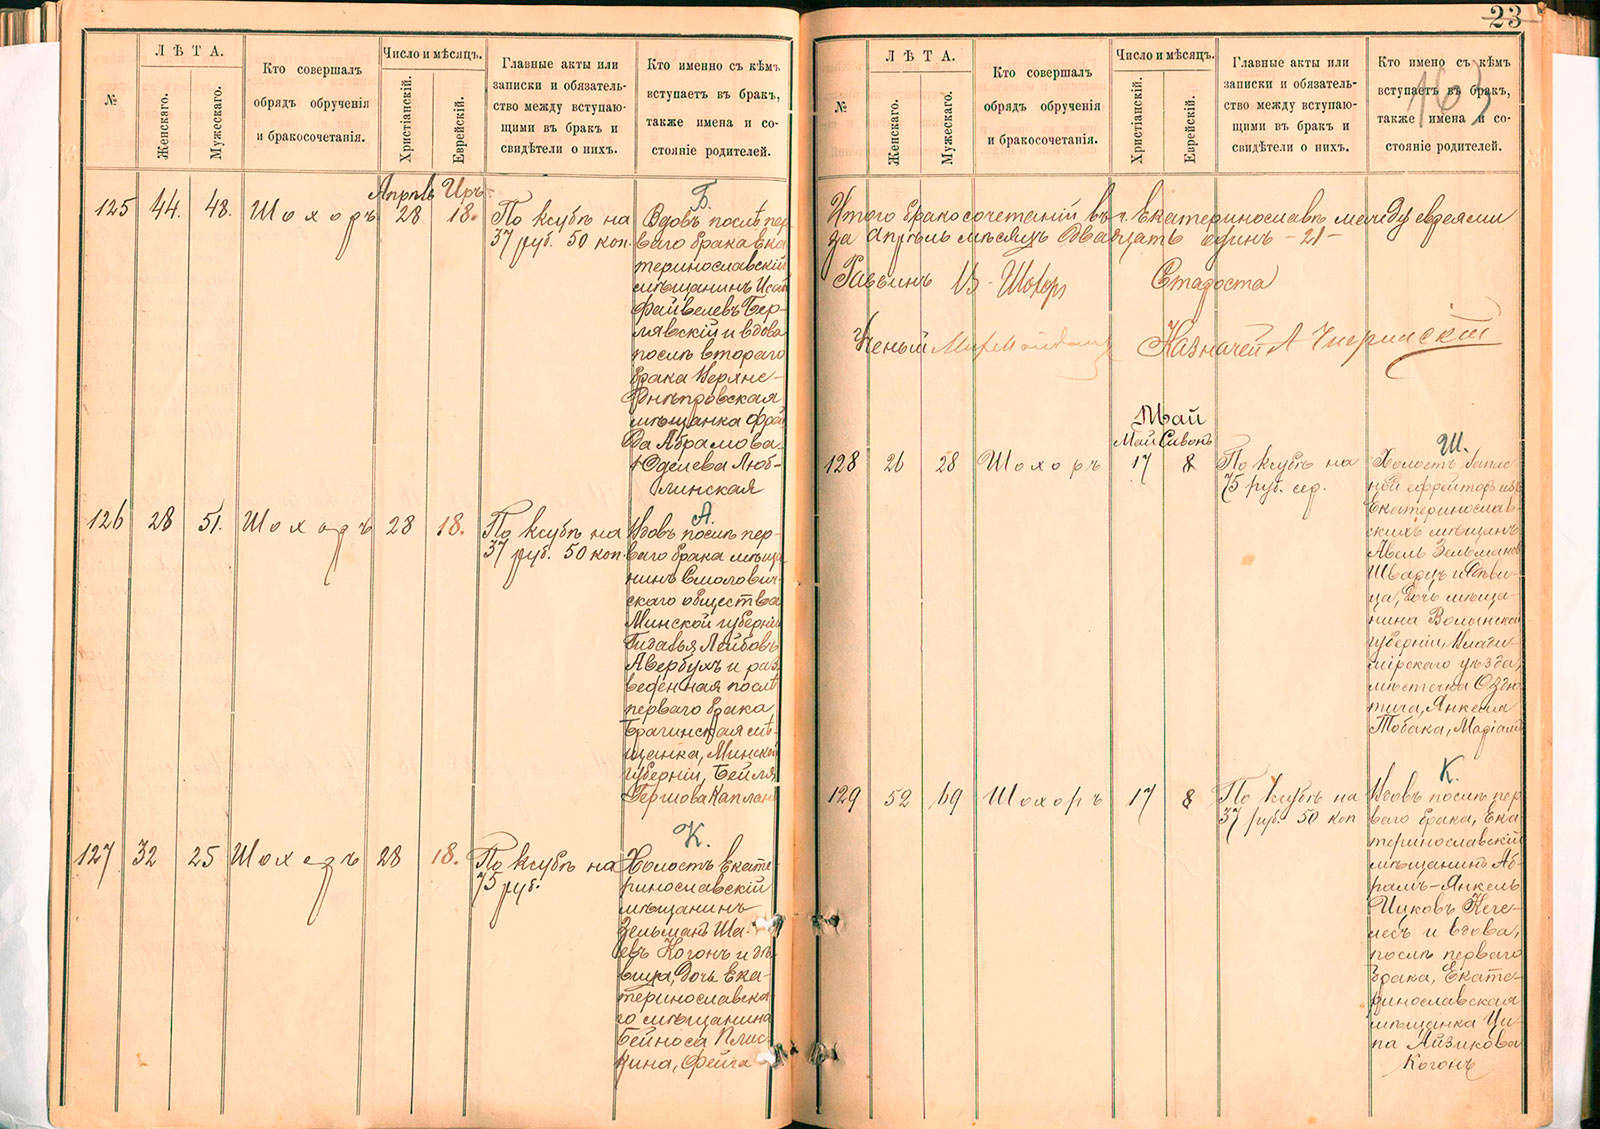 №
ЛѢТА.
Женскаго.
Мужескаго.
Кто совершалъ
обрядъ обрученія
и бракосочетанія.
Число и мѣсяцъ.
Христіанскій.
Еврейскій.
Главные акты или
записки и обязатель-
ство между вступаю-
щими въ бракъ и
свидѣтели о нихъ.
Кто именно съ кѣмъ
вступаетъ въ бракъ,
также имена и со-
стояніе родителей.
Апрѣль Iръ
125 44. 48. Шохоръ 28 18.
По ксубѣ на
37 руб. 50 коп.
Б.
Вдовъ послѣ пер
ваго брака Ека
теринославскій
мѣщанинъ Исай
Файвелевъ Бер-
лявскій и вдова
послѣ втораго
брака Верхне-
Днѣпровская
мѣщанка Фрей
да Абрамова
Юделева Люб-
линская
126 28 51. Шохоръ 28 18.
По ксубѣ на
37 руб. 50 коп.
А.
Вдовъ послѣ пер-
ваго брака мѣща
нинъ Смолович-
скаго общества
Минской губерніи
Гидалья Лейбовъ
Авербухъ и раз
веденная послѣ
перваго брака
Брагинская мѣ
щанка, Минской
губерніи, Бейля
Гершова Капланъ
127 32 25 Шохоръ 28 18.
По ксубѣ на
75 руб.
К.
Холостъ Екате-
ринославскій
мѣщанинъ
Зельманъ Ша-
евъ Когонъ и дѣ
вица, дочь Ека-
теринославска-
го мѣщанина
Бейноса Плис-
кина, Фейга
23
163
№
ЛѢТА.
Женскаго.
Мужескаго.
Кто совершалъ
обрядъ обрученія
и бракосочетанія.
Число и мѣсяцъ.
Христіанскій.
Еврейскій.
Главные акты или
записки и обязатель-
ство между вступаю-
щими въ бракъ и
свидѣтели о нихъ.
Кто имено съ кѣмъ
вступаетъ въ бракъ,
также имена и со-
стояніе родителей.
Итого бракосочетаній въ г. Екатеринославѣ между евреями
за Апрѣль мѣсяцъ двадцать одинъ - 21 -
Раввинъ Шохоръ Староста
Ученый Казначей А Чигринскій
Май
Май Сивонъ
128 26 28 Шохоръ 17 8
По ксубѣ на
75 руб. сер.
Ш.
Холостъ запас
ной ефрейторъ изъ
Екатеринослав-
скихъ мѣщанъ
Авель Зельмановъ
Шварцъ и дѣви-
ца, дочь мѣща-
нина Волынской
губерніи, Влади-
мірскаго уѣзда,
мѣстечка Оздю-
тича, Янкеля
Тобака, Маріамъ
129 52 69 Шохоръ 17 8
По ксубѣ на
37 руб. 50 коп
К.
Вдовъ послѣ пер
ваго брака, Ека
теринославскій
мѣщанинъ Аб-
рамъ-Янкель
Ицковъ Кеге-
лесъ и вдова,
послѣ перваго
брака, Екате-
ринославская
мѣщанка Ци-
па Айзикова
Когонъ